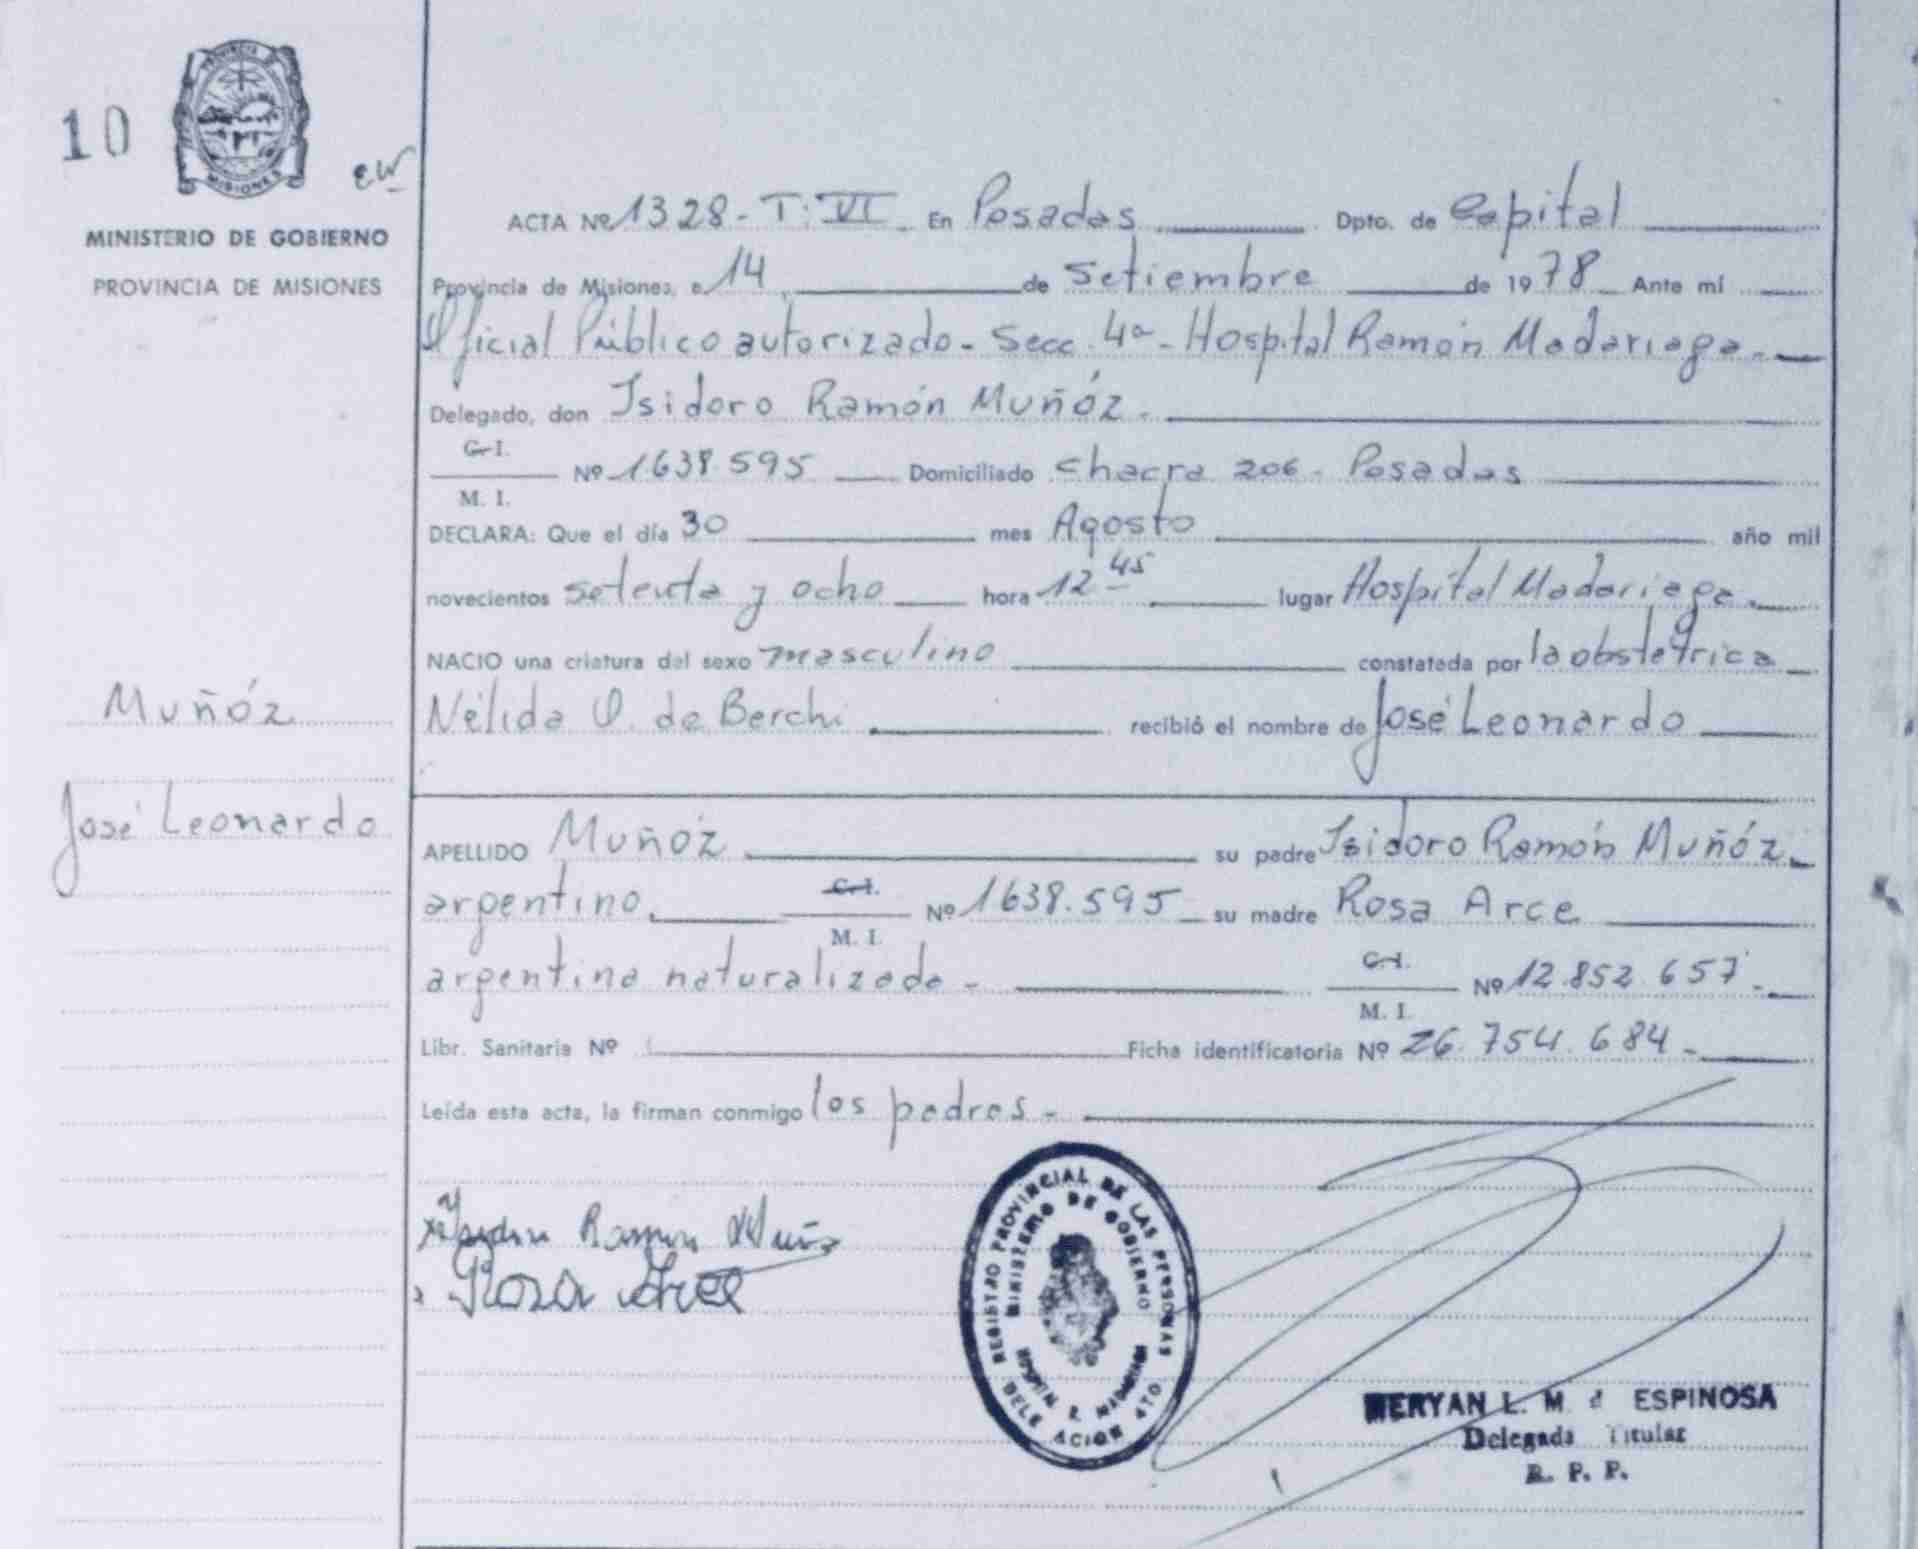 10
PROVINCIA DE
MISIONES
MINISTERIO DE GOBIERNO
PROVINCIA DE MISIONES
ACTA Nº 1328 - T: VI. En Posadas Dpto. de Capital
Provincia de Misiones, a 14 de Setiembre de 1978 Ante mí
Oficial Público autorizado - Secc. 4ª - Hospital Ramón Madariaga.-
Delegado, don Isidoro Ramón Muñóz.
C. I.
Nº 1638.595 Domiciliado Chacra 206 - Posadas
M. I.
DECLARA: Que el día 30 mes Agosto año mil
novecientos setenta y ocho hora 12 45 lugar Hospital Madariaga.
NACIO una criatura del sexo masculino constatada por la obstétrica
Nélida O. de Berchi recibió el nombre de José Leonardo
Muñóz
José Leonardo
APELLIDO Muñóz su padre Isidoro Ramón Muñóz.
argentino. C. I. Nº 1638.595 su madre Rosa Arce
M. I.
argentina naturalizada - C. I. Nº 12.852.657.-
M. I.
Libr. Sanitaria Nº Ficha identificatoria Nº 26.754.684 -
Leída esta acta, la firman conmigo los padres -
Ramon Muñoz
Rosa Arce
REGISTRO PROVINCIAL DE LAS PERSONAS
MINISTERIO DE GOBIERNO
DELEGACION 4TO
MERYAN L. M. d ESPINOSA
Delegada Titular
R. P. P.